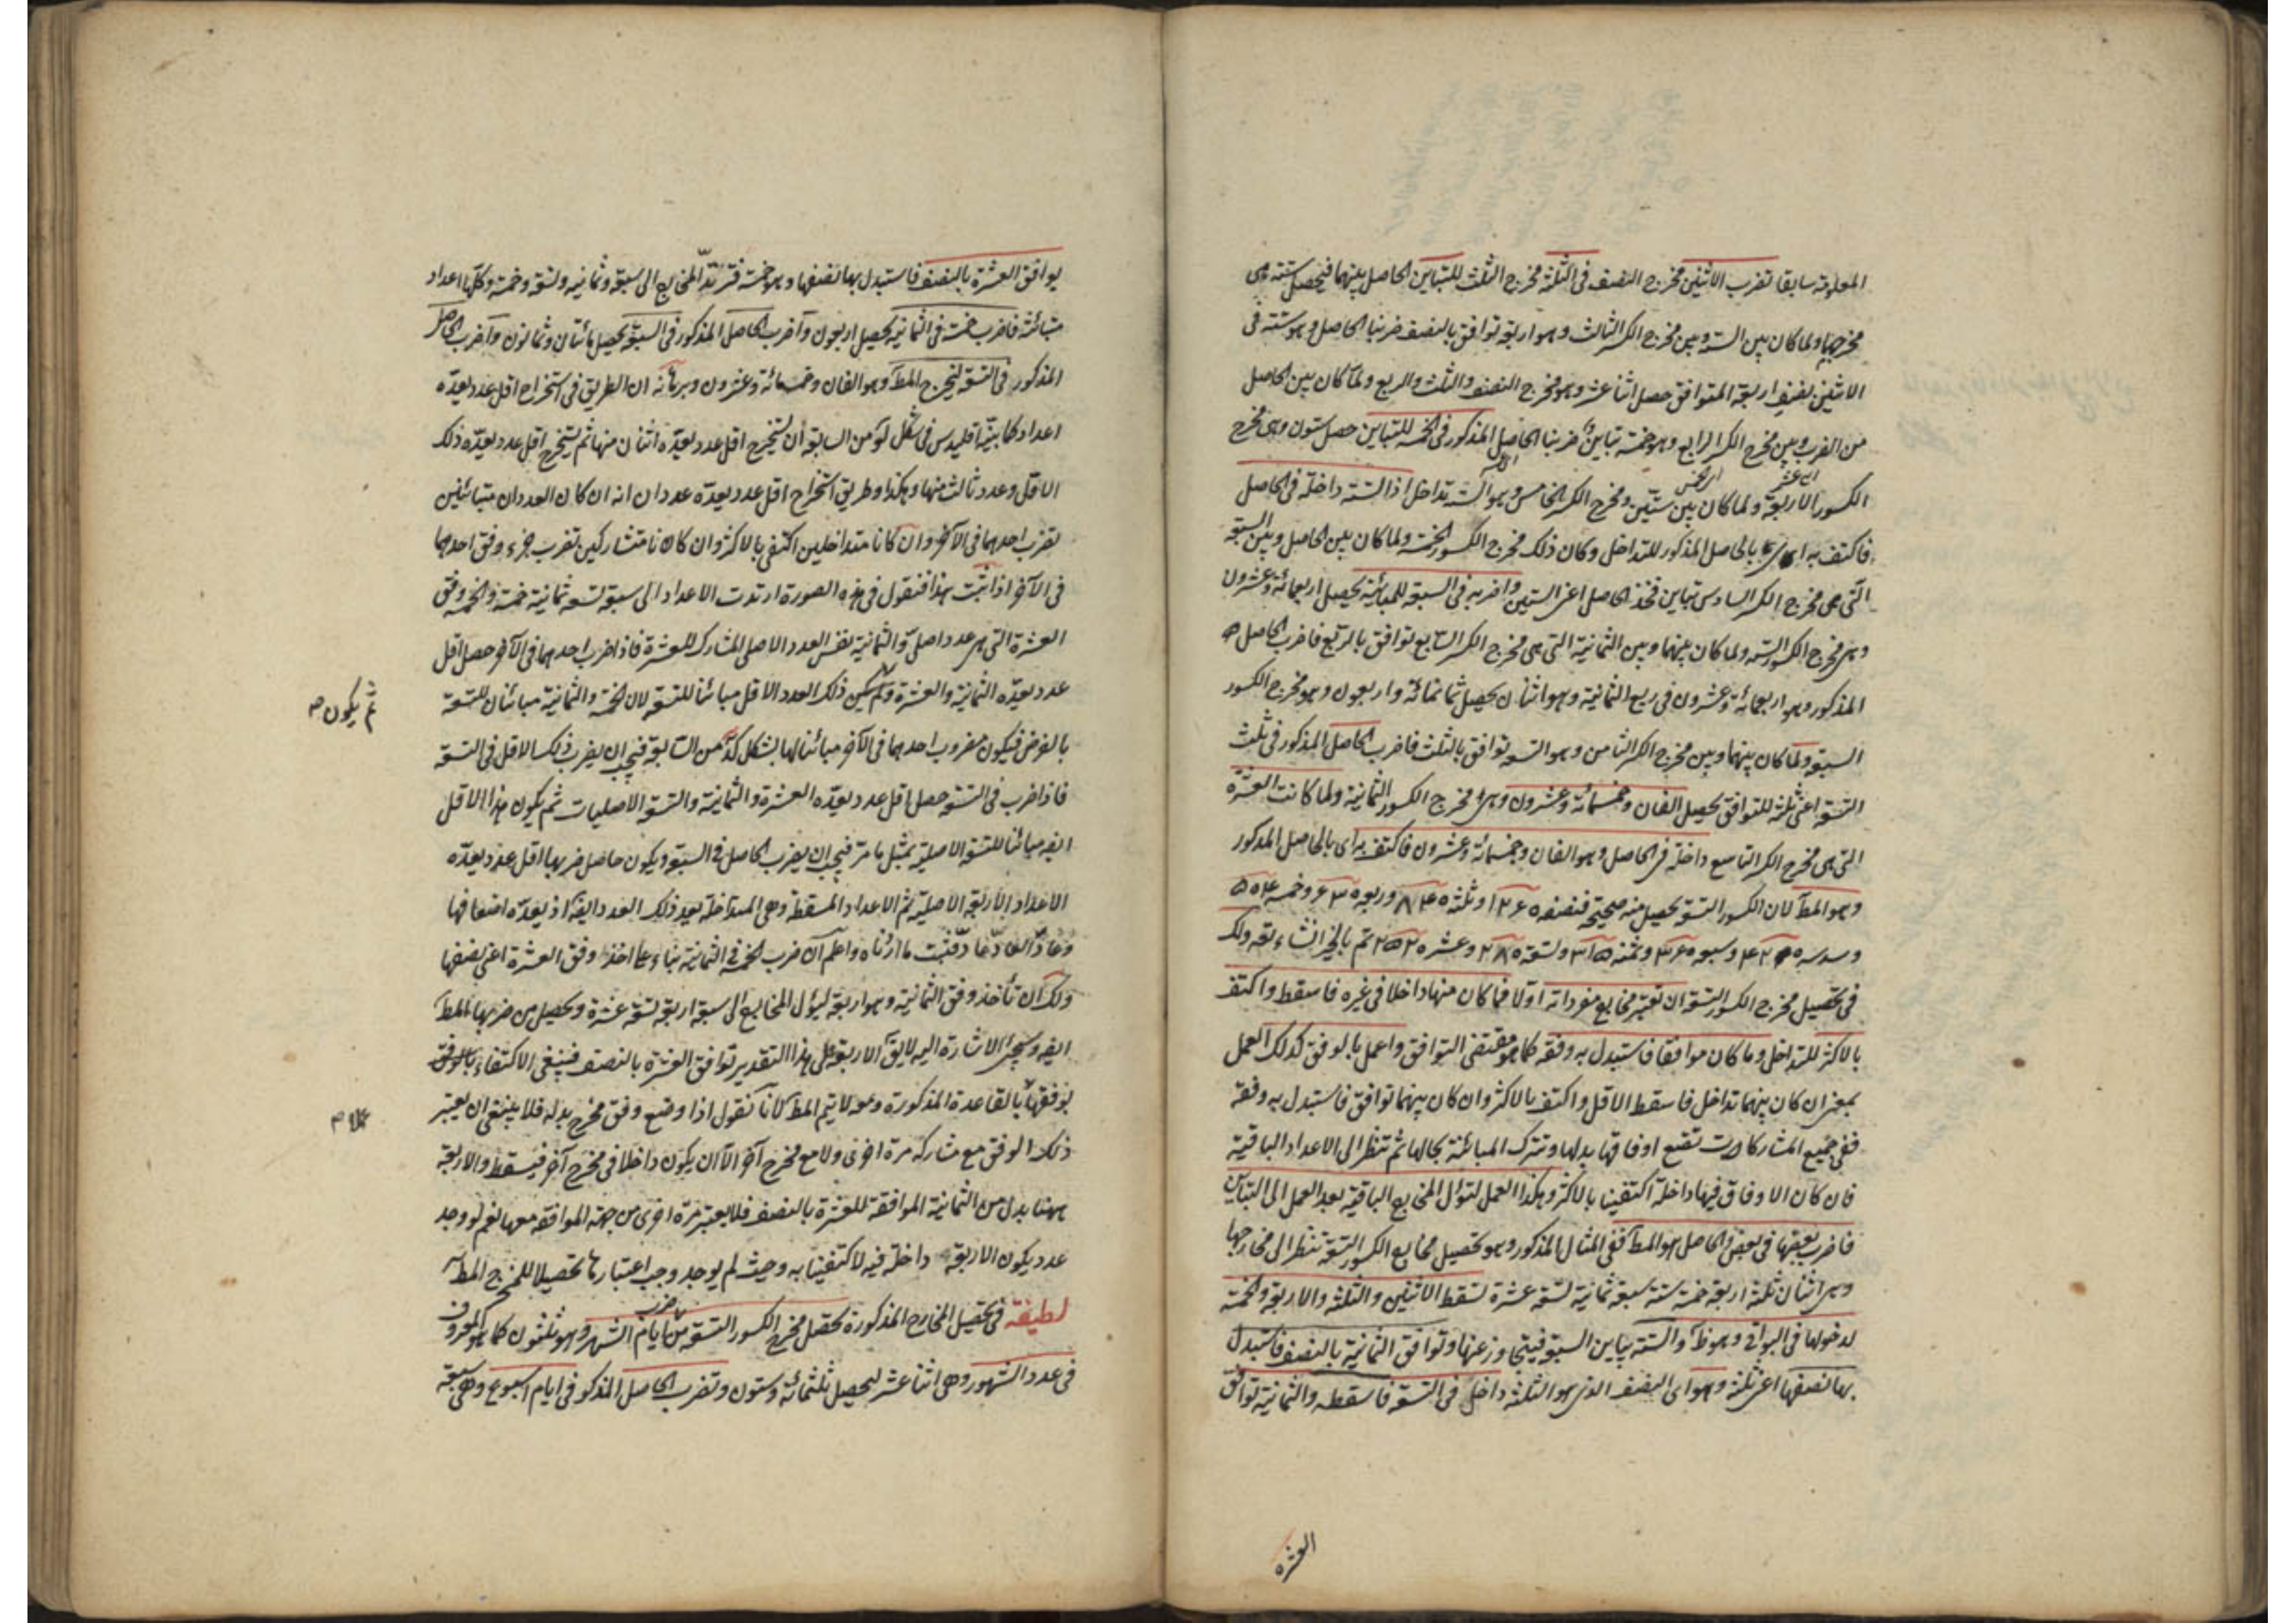 المعلومة سابقا تضرب الاثنين مخرج النصف فى الثلثة مخرج الثلث للتباين الحاصل بينهما فيحصل ستة هى
مخرجهما ولما كان بين الستة وبين مخرج الكسر الثالث وهو اربعة توافق بالنصف ضربنا الحاصل وهو ستة فى
الاثنين نصف اربعة المتوافق حصل اثنا عشر وهو مخرج النصف والثلث والربع ولما كان بين الحاصل
من الضرب وبين مخرج الكسر الرابع وهو خمسة تباين ضربنا الحاصل المذكور فى الخمسة للتباين حصل ستون وهى مخرج
الكسور الاربعة ولما كان بين ستين ومخرج الكسر الخامس وهو الستة تداخل اذ الستة داخلة فى الحاصل
فاكتف به اى بالحاصل المذكور للتداخل وكان ذلك مخرج الكسور الخمسة ولما كان بين الحاصل وبين السبعة
التى هى مخرج الكسر السادس تباين فخذ الحاصل اعنى الستين واضربه فى السبعة للمباينة يحصل اربعمائة وعشرون
وهى مخرج الكسور الستة ولما كان بينهما وبين الثمانية التى هى مخرج الكسر السابع توافق بالربع فاضرب الحاصل
المذكور وهو اربعمائة وعشرون فى ربع الثمانية وهو اثنان يحصل ثمانمائة واربعون وهو مخرج الكسور
السبعة ولما كان بينهما وبين مخرج الكسر الثامن وهو التسعة توافق بالثلث فاضرب الحاصل المذكور فى ثلث
التسعة اعنى ثلثة للتوافق يحصل الفان وخمسمائة وعشرون وهى مخرج الكسور الثمانية ولما كانت العشرة
التى هى مخرج الكسر التاسع داخلة فى الحاصل وهو الفان وخمسمائة وعشرون فاكتف به اى بالحاصل المذكور
وهو المط لان الكسور التسعة يحصل منه صحيحة فنصفه ١٢۶٥ وثلثه ٨۴٥ وربعه ۶٣٥ وخمسه ٥٥۴
وسدسه ۴٢٥ وسبعه ٣۶٥ وثمنه ٣١٥ وتسعه ٢٨٥ وعشره ٢٥٢ تم بالخير انشاء تعه ولك
فى تحصيل مخرج الكسور التسعة ان تعتبر مخارج مفرداته اولا فما كان منها داخلا فى غيره فاسقط واكتف
بالاكثر للتداخل وما كان موافقا فاستبدل به وفقه كما هو مقتضى التوافق واعمل بالوفق كذلك العمل
بمعنى ان كان بينهما تداخل فاسقط الاقل واكتف بالاكثر وان كان بينهما توافق فاستبدل به وفقه
ففى جميع المشاركات تضع اوفاقها بدلها وتترك المباينة بحالها ثم تنظر الى الاعداد الباقية
فان كان الاوفاق فيها داخلة اكتفينا بالاكثر وهكذا العمل لتؤل المخارج الباقية بعد العمل الى التباين
فاضرب بعضها فى بعض والحاصل هو المط ففى المثال المذكور وهو تحصيل مخارج الكسور التسعة تنظر الى مخارجها
وهى اثنان ثلثة اربعة خمسة ستة سبعة ثمانية تسعة عشرة تسقط الاثنين والثلثة والاربعة والخمسة
لدخولها فى البواقى وهو ظ والستة يباين السبعة وتوافق الثمانية بالنصف فاستبدل
بها نصفها اعنى ثلثة وهو اى النصف الذى هو الثلثة داخل فى التسعة فاسقطه والثمانية توافق
العشرة
يوافق العشرة بالنصف فاستبدل بها نصفها وهو خمسة فترتد المخارج الى سبعة وثمانية وتسعة وخمسة وكلها اعداد
متبائنة فاضرب خمسة فى الثمانية يحصل اربعون واضرب الحاصل المذكور فى السبعة يحصل مائتان وثمانون واضرب الحاصل
المذكور فى التسعة ليخرج المط وهو الفان وخمسمائة وعشرون وبرهانه ان الطريق فى استخراج اقل عدد يعده
اعداد كما بينه اقليدس فى شكل لو من السابعة ان يستخرج اقل عدد يعده اثنان منها ثم يستخرج اقل عدد يعده ذلك
الاقل وعدد ثالث منها وهكذا وطريق استخراج اقل عدد يعده عددان انه ان كان العددان متبائنين
تضرب احدهما فى الآخر وان كانا متداخلين اكتفى بالاكثر وان كانا متشاركين تضرب جزء وفق احدهما
فى الآخر اذا ثبت هذا فنقول فى هذه الصورة ارتدت الاعداد الى سبعة تسعة ثمانية خمسة والخمسة وفق
العشرة التى هى عدد اصلى والثمانية نفس العدد الاصلى المشارك للعشرة فاذا ضرب احدهما فى الآخر حصل اقل
عدد يعده الثمانية والعشرة ذلك العدد الاقل مبائنا للتسعة لان الخمسة والثمانية مبائنان للتسعة
ثم يكون
بالفرض فيكون مضروب احدهما فى الآخر مبائنا لها بشكل كد من السابعة فيجب ان يضرب ذلك الاقل فى التسعة
فاذا ضرب فى التسعة حصل اقل عدد يعده العشرة والثمانية والتسعة الاصليات ثم يكون هذا الاقل
ايضه مبائنا للتسعة الاصلية بمثل ما مر فيجب ان يضرب الحاصل فى السبعة ويكون حاصل ضربهما اقل عدد يعده
الاعداد الاربعة الاصلية ثم الاعداد المسقطة وهى المتداخلة يعد ذلك العدد ايضه اذ يعده اضعافها
وعاد العاد عاد فثبت ما اردناه واعلم ان ضرب الخمسة فى الثمانية بناء على اخذ وفق العشرة اعنى نصفها
ولك ان تأخذ وفق الثمانية وهو اربعة ليؤل المخارج الى سبعة اربعة تسعة عشرة ويحصل من ضربها المط
ايضه وسيجئ الاشارة اليه لا يق الاربعة على هذا التقدير توافق العشرة بالنصف فينبغى الاكتفاء بالوفق
بوفقها بالقاعدة المذكورة وح لا يتم المط لانا نقول اذا وضع وفق مخرج بدله فلا ينبغى ان يعتبر
ذلك الوفق مع مشاركه مرة اخرى ولا مع مخرج آخر الا ان يكون داخلا فى مخرج آخر فيسقط والاربعة
ههنا بدل من الثمانية الموافقة للعشرة بالنصف فلا يعتبر مرة اخرى من جهة الموافقة معها نعم لو وجد
عدد يكون الاربعة داخلة فيه لاكتفينا به وحيث لم يوجد وجب اعتبارها تحصيلا للمخرج المط
لطيفة فى تحصيل المخارج المذكورة يحصل مخرج الكسور التسعة من ضرب ايام الشهر وهو ثلثون كما هو المعروف
فى عدد الشهور وهى اثنا عشر ليحصل ثلثمائة وستون وتضرب الحاصل المذكور فى ايام اسبوع وهى سبعة